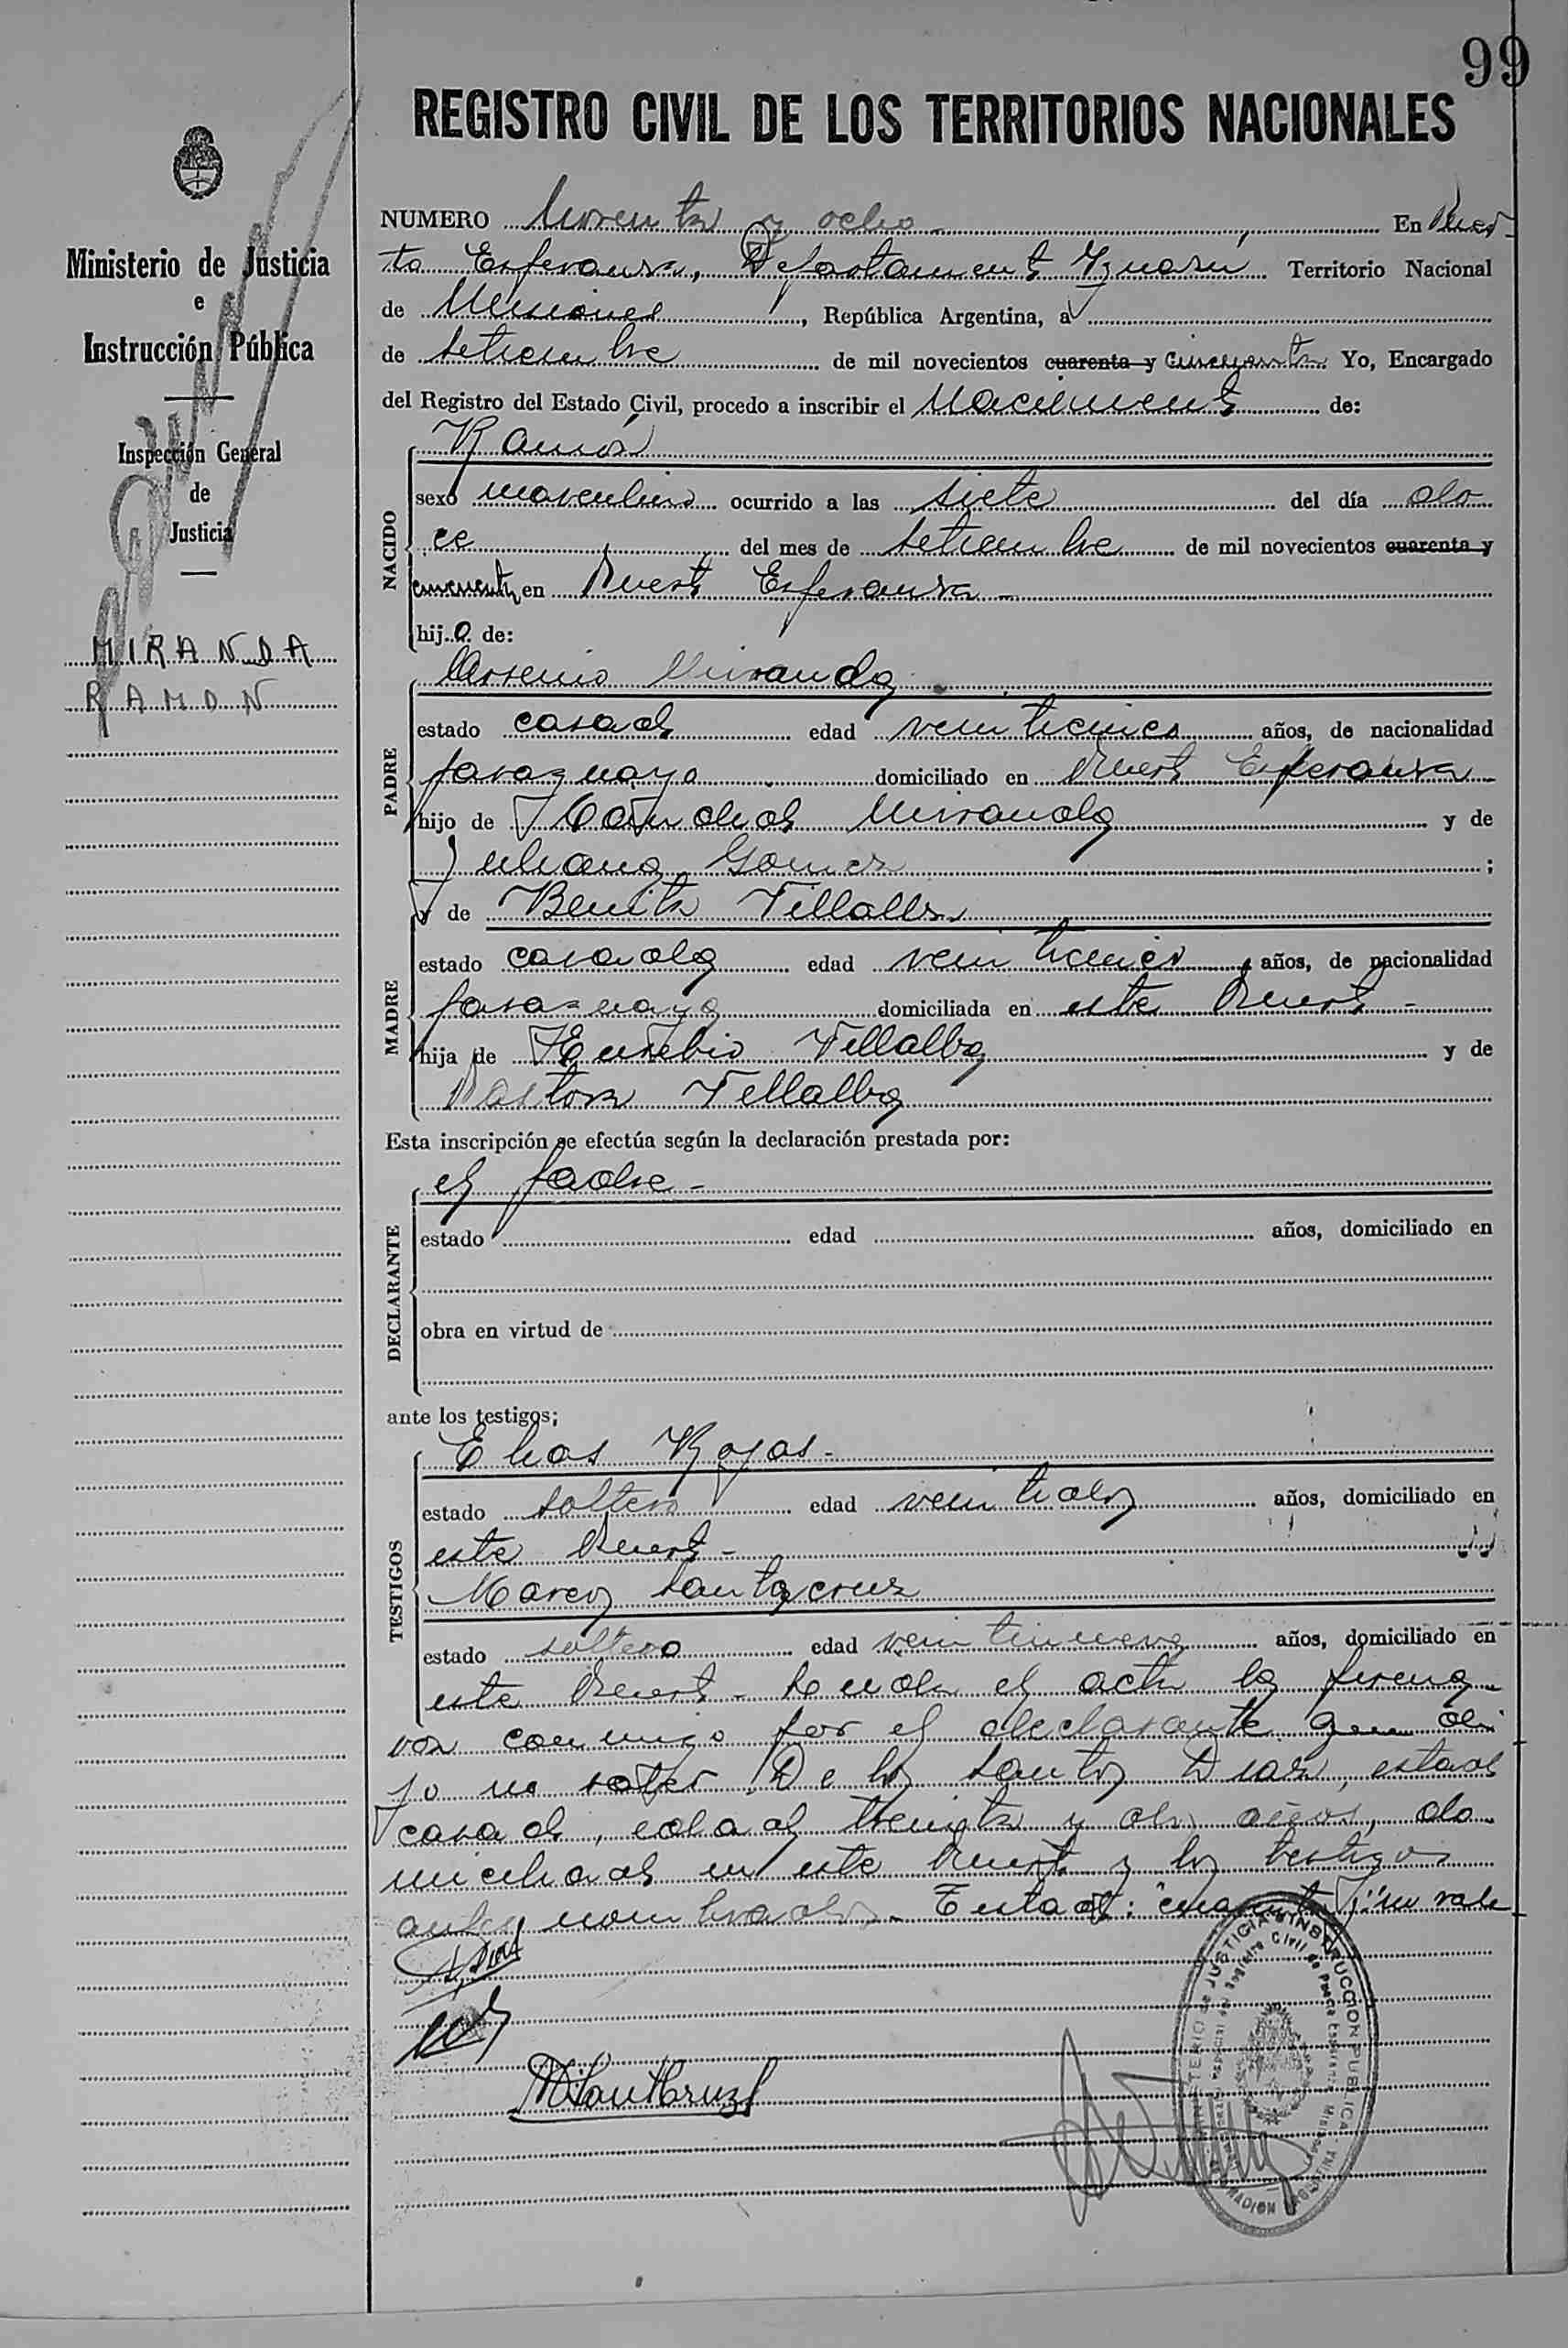 99
REGISTRO CIVIL DE LOS TERRITORIOS NACIONALES
Ministerio de Justicia
e
Instrucción Pública
Inspección General
de
Justicia
MIRANDA
RAMON
NUMERO Noventa y ocho En Puer-
to Esperanza, Departamento Iguazú Territorio Nacional
de Misiones, República Argentina, a
de setiembre de mil novecientos cuarenta y cincuenta Yo, Encargado
del Registro del Estado Civil, procedo a inscribir el Nacimiento de:
NACIDO
Ramón
sexo masculino ocurrido a las siete del día do
ce del mes de setiembre de mil novecientos cuarenta y
cincuenta en Puerto Esperanza
hijo de:
PADRE
Arsenio Miranda
estado casado edad veinticinco años, de nacionalidad
paraguaya domiciliado en Puerto Esperanza
hijo de Miranda y de
Juliana Gomez ;
MADRE
y de Benita Villalba
estado casada edad veinticinco años, de nacionalidad
paraguaya domiciliada en este Puerto -
hija de Eusebio Villalba y de
Pastora Villalba
Esta inscripción se efectúa según la declaración prestada por:
DECLARANTE
el padre -
estado edad años, domiciliado en
obra en virtud de
ante los testigos;
TESTIGOS
Elias Rojas -
estado soltero edad veintidos años, domiciliado en
este Puerto -
Marcos Santacruz
estado soltero edad veintinueve años, domiciliado en
este Puerto - Leida el acta la firma
ron conmigo por el declarante quien di
jo no saber De los Santos Diaz, estado
casado, edad treinta y dos años, do
miciliado en este Puerto y los testigos
antes nombrados - Testado: "cuarenta y" no vale
MSantacruz
MINISTERIO DE JUSTICIA E INSTRUCCION PUBLICA